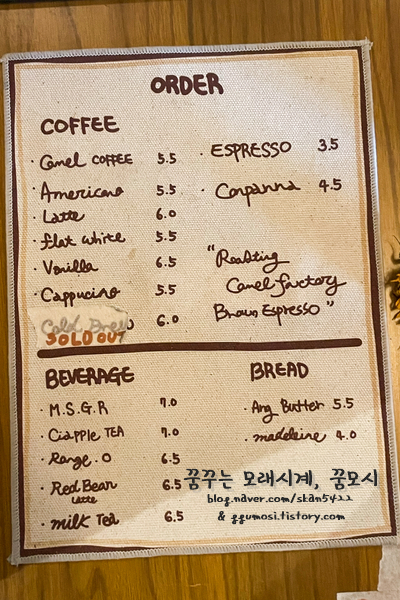 ORDER
COFFEE
· Camel COFFEE 5.5
· Americano 5.5
· Latte 6.0
· flat white 5.5
· Vanilla 6.5
· Cappucino 5.5
Cold Brew 6.0
SOLD OUT
· ESPRESSO 3.5
· Conpanna 4.5
"Roasting
Camel factory
Braun Espresso"
BEVERAGE
· M.S.G.R 7.0
· Ciapple TEA 7.0
· Range.O 6.5
· Red Bean 6.5
Latte
· milk Tea 6.5
BREAD
· Ang Butter 5.5
· madeleine 4.0
꿈꾸는 모래시계, 꿈모시
blog.naver.com/skan5422
& ggumosi.tistory.com